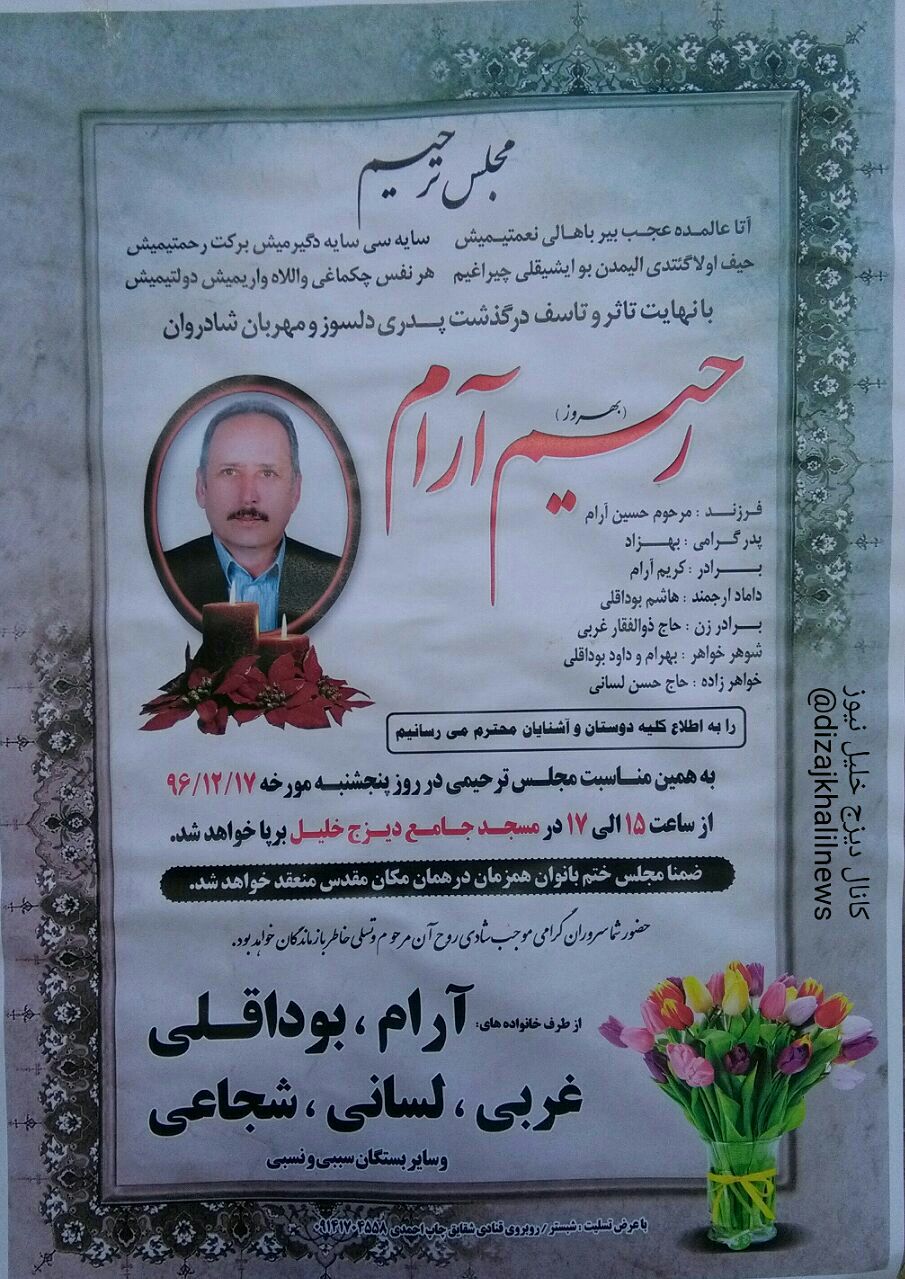 مجلس ترحیم
آتا عالمده عجب بیر باهالی نعمتیمیش    سایه سی سایه دگیرمیش برکت رحمتیمیش
حیف اولا گئتدی الیمدن بو ایشیقلی چیراغیم    هر نفس چکماغی واللاه واریمیش دولتیمیش
با نهایت تاثر و تاسف درگذشت پدری دلسوز و مهربان شادروان
رحیم آرام
(بهروز)
فرزند : مرحوم حسین آرام
پدر گرامی : بهزاد
برادر : کریم آرام
داماد ارجمند : هاشم بوداقلی
برادر زن : حاج ذوالفقار غربی
شوهر خواهر : بهرام و داود بوداقلی
خواهر زاده : حاج حسن لسانی
را به اطلاع کلیه دوستان و آشنایان محترم می رسانیم
به همین مناسبت مجلس ترحیمی در روز پنجشنبه مورخه ۹۶/۱۲/۱۷
از ساعت ۱۵ الی ۱۷ در مسجد جامع دیزج خلیل برپا خواهد شد.
ضمنا مجلس ختم بانوان همزمان در همان مکان مقدس منعقد خواهد شد.
حضور شما سروران گرامی موجب شادی روح آن مرحوم و تسلی خاطر بازماندگان خواهد بود.
از طرف خانواده های: آرام ، بوداقلی
غربی ، لسانی ، شجاعی
و سایر بستگان سببی و نسبی
با عرض تسلیت : شبستر / روبروی قنادی شقایق چاپ احمدی ۰۹۱۴۱۷۰۴۵۵۸
کانال دیزج خلیل نیوز
@dizajkhalilnews